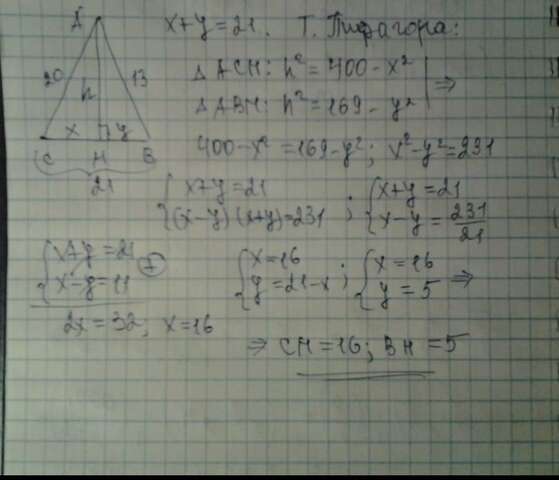 A
20
h
13
x
y
C
H
B
21
x+y=21. Т. Пифагора:
Δ ACH: h² = 400 - x² | ⇒
Δ ABH: h² = 169 - y²
400 - x² = 169 - y²; x² - y² = 231
{ x+y = 21
(x-y)(x+y) = 231 ;
{ x+y = 21
x-y = 231/21
{ x+y = 21
x-y = 11 (+)
2x = 32; x = 16
{ x = 16
y = 21-x ;
{ x = 16
y = 5 ⇒
⇒ CH = 16; BH = 5